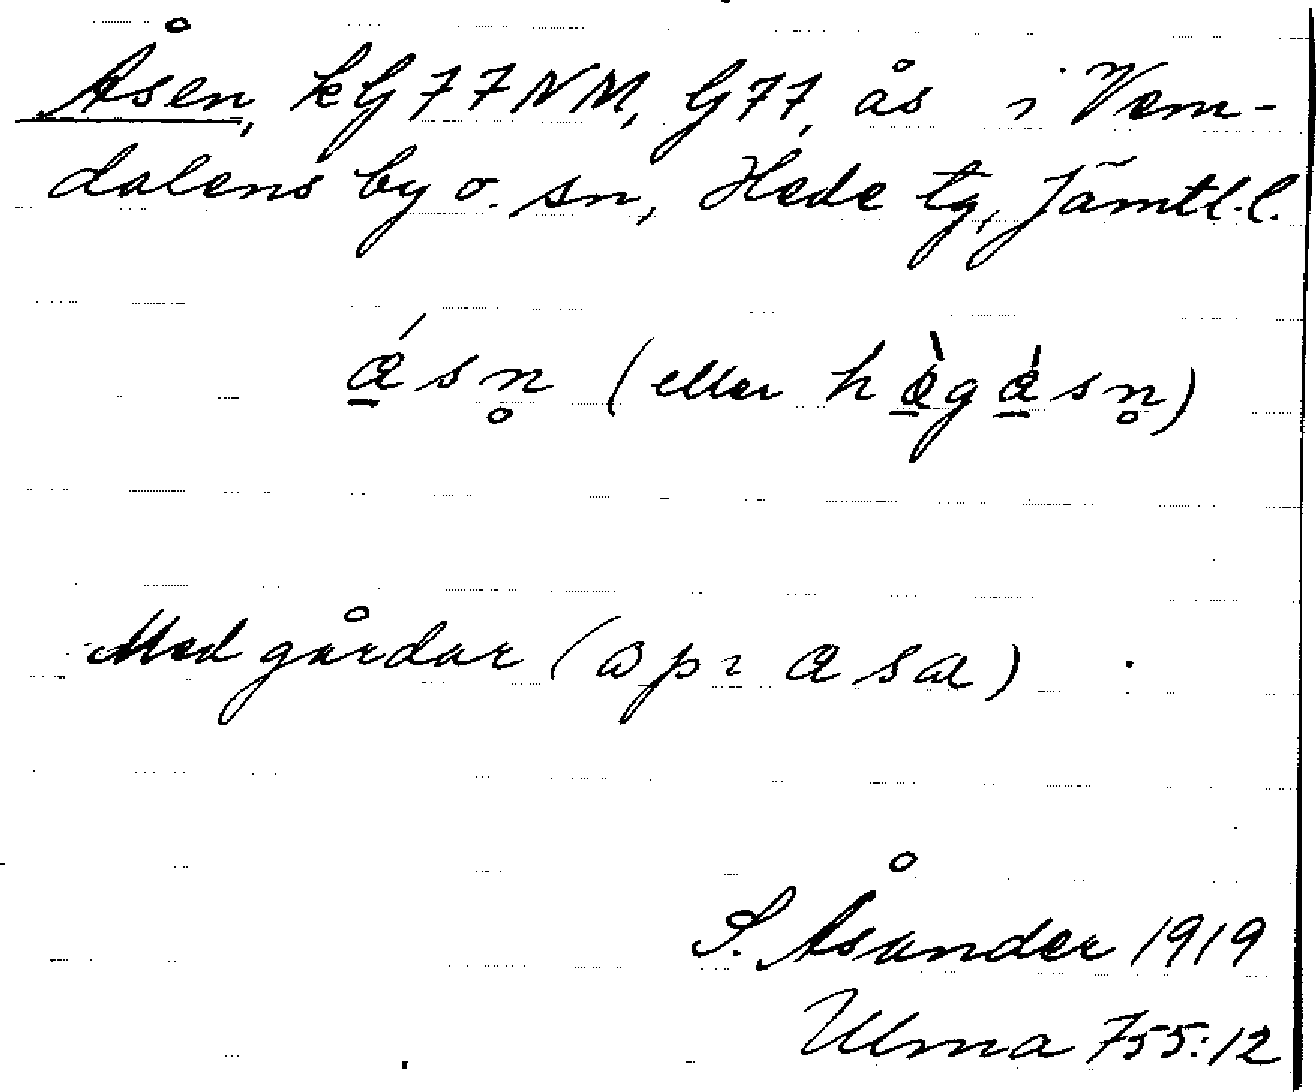 Åsen, kG77NM, G77, ås i Vem-
dalens by o. sn, Hede tg, Jämtl.l.
ǽsn̥ (eller hæ̀gǽsn̥)
Med gårdar (
S. Åsander 1919
Ulma 755:12